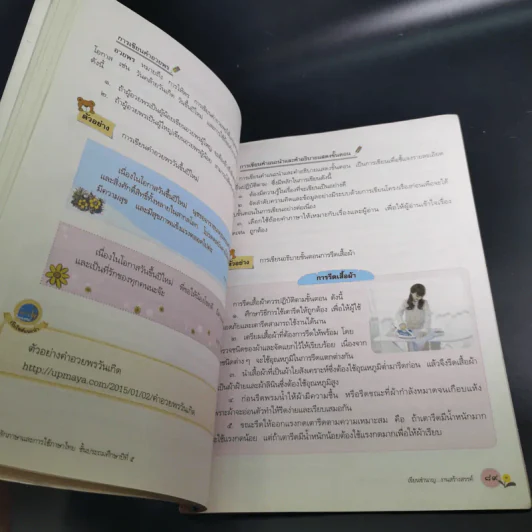 การเขียนคำอวยพร
อวยพร หมายถึง การให้พร
โอกาส เช่น วันคล้ายวันเกิด วันขึ้นปีใหม่
ดังนี้
๑. ถ้าผู้อวยพรเป็นผู้น้อยเขียนอวยพรผู้ใหญ่
๒. ถ้าผู้อวยพรเป็นผู้ใหญ่เขียนอวยพรผู้น้อย
ตัวอย่าง
การเขียนคำอวยพรวันขึ้นปีใหม่
เนื่องในโอกาสวันขึ้นปีใหม่
และสิ่งศักดิ์สิทธิ์ทั้งหลายในสากลโลก
มีความสุข และมีสุขภาพแข็งแรงตลอดไป
เนื่องในโอกาสวันขึ้นปีใหม่
และเป็นที่รักของทุกคนนะจ๊ะ
ตัวอย่างคำอวยพรวันเกิด
http://upmaya.com/2015/01/02/คำอวยพรวันเกิด
หลักภาษาและการใช้ภาษาไทย ชั้นประถมศึกษาปีที่ ๕
การเขียนคำแนะนำและคำอธิบายแสดงขั้นตอน
การเขียนคำแนะนำและคำอธิบายแสดงขั้นตอน เป็นการเขียนเพื่อชี้แจงรายละเอียด
ปฏิบัติตาม ซึ่งมีหลักในการเขียนดังนี้
๑. ต้องมีความรู้ในเรื่องที่จะเขียนเป็นอย่างดี
๒. จัดลำดับความคิดและข้อมูลอย่างมีระบบด้วยการเขียนโครงเรื่องก่อนเพื่อจะได้
ขั้นตอนในการเขียนอย่างต่อเนื่อง
๓. เลือกใช้ถ้อยคำภาษาให้เหมาะกับเรื่องและผู้อ่าน เพื่อให้ผู้อ่านเข้าใจเรื่อง
ถูกต้อง
ตัวอย่าง การเขียนอธิบายขั้นตอนการรีดเสื้อผ้า
การรีดเสื้อผ้า
การรีดเสื้อผ้าควรปฏิบัติตามขั้นตอน ดังนี้
๑. ศึกษาวิธีการใช้เตารีดให้ถูกต้อง เพื่อให้ผู้ใช้
ปลอดภัยและเตารีดสามารถใช้งานได้นาน
๒. เตรียมเสื้อผ้าที่ต้องการรีดให้พร้อม โดย
ตรวจชนิดของผ้าและจัดแยกไว้ให้เรียบร้อย เนื่องจาก
ชนิดต่าง ๆ จะใช้อุณหภูมิในการรีดแตกต่างกัน
๓. นำเสื้อผ้าที่เป็นผ้าใยสังเคราะห์ซึ่งต้องใช้อุณหภูมิต่ำมารีดก่อน แล้วจึงรีดเสื้อผ้า
เป็นผ้าฝ้ายและผ้าลินินซึ่งต้องใช้อุณหภูมิสูง
๔. ก่อนรีดพรมน้ำให้ผ้ามีความชื้น หรือรีดขณะที่ผ้ากำลังหมาดจนเกือบแห้ง
เพราะผ้าจะอ่อนตัวทำให้รีดง่ายและเรียบเสมอกัน
๕. ขณะรีดให้ออกแรงกดเตารีดตามความเหมาะสม คือ ถ้าเตารีดมีน้ำหนักมาก
จะใช้แรงกดน้อย แต่ถ้าเตารีดมีน้ำหนักน้อยต้องใช้แรงกดมากเพื่อให้ผ้าเรียบ
เขียนชำนาญ...งานสร้างสรรค์ ๘๙